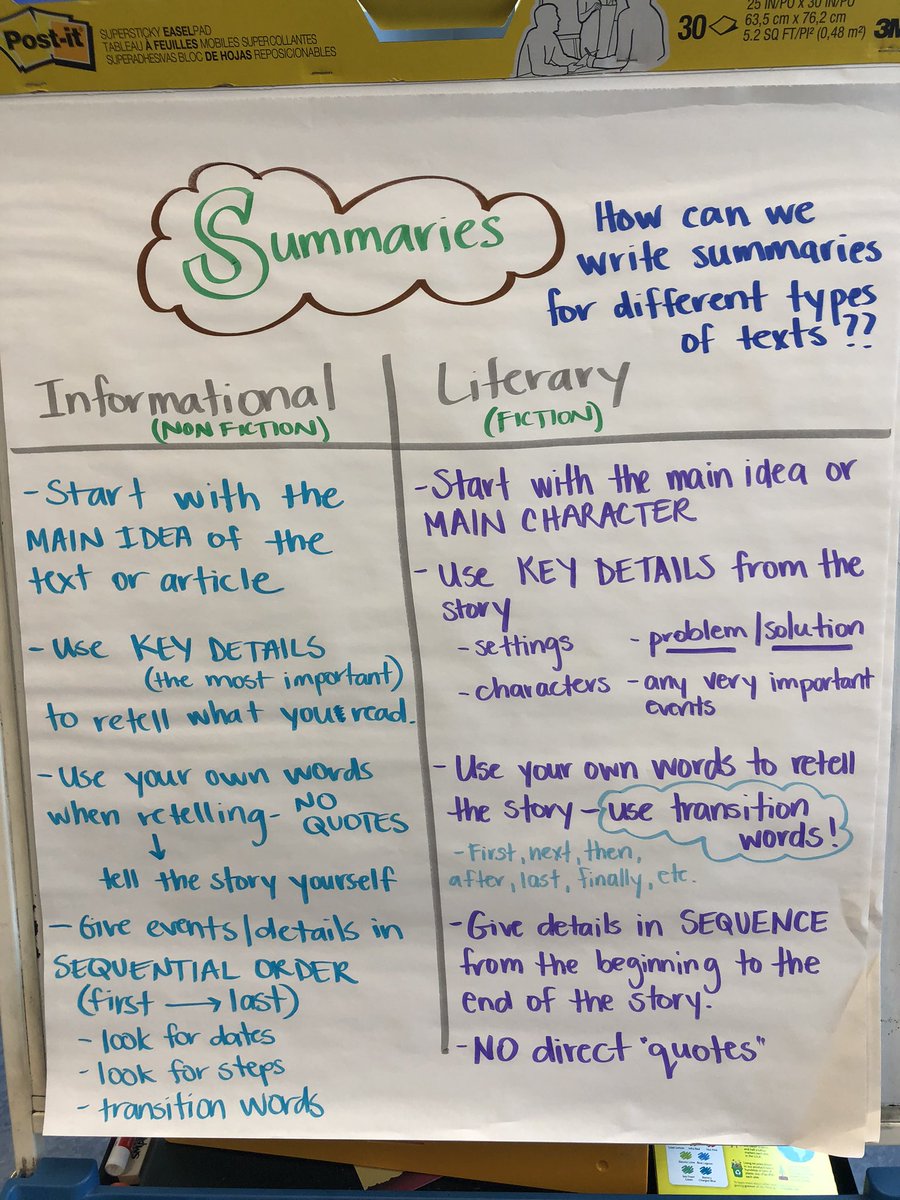 Post-it
SUPERSTICKY EASELPAD
TABLEAU À FEUILLES MOBILES SUPERCOLLANTES
SUPERADHESIVAS BLOC DE HOJAS REPOSICIONABLES
30
25 IN/PO x 30 IN/PO
63,5 cm x 76,2 cm
5.2 SQ FT/PI² (0,48 m²)
3M
Summaries
How can we
write summaries
for different types
of texts??
Informational
(NON FICTION)
- Start with the
MAIN IDEA of the
text or article
- Use KEY DETAILS
(the most important)
to retell what you read.
- Use your own words
when retelling- NO
QUOTES
↓
tell the story yourself
- Give events/details in
SEQUENTIAL ORDER
(first → last)
- look for dates
- look for steps
- transition words
Literary
(FICTION)
- Start with the main idea or
MAIN CHARACTER
- Use KEY DETAILS from the
story
- settings - problem/solution
- characters - any very important
events
- Use your own words to retell
the story - use transition
words!
- First, next, then,
after, last, finally, etc.
- Give details in SEQUENCE
from the beginning to the
end of the story.
- NO direct "quotes"